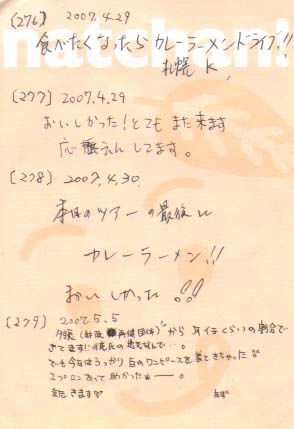 natchan!
(276) 2007.4.29
食べたくなったらカレーラーメンドライブ!!
札幌 K,
(277) 2007.4.29
おいしかった!とてもまた来ます
応援してます。
(278) 2007.4.30.
本日のツアーの最後に
カレーラーメン!!
おいしかった!!
(279) 2007.5.5
夕張(財政再建団体)から 月イチくらいの割合で
きてます!!
でも今日はうっかり白のワンピースを着てきちゃった
エプロンあって助かったー。
またきます♡ あず